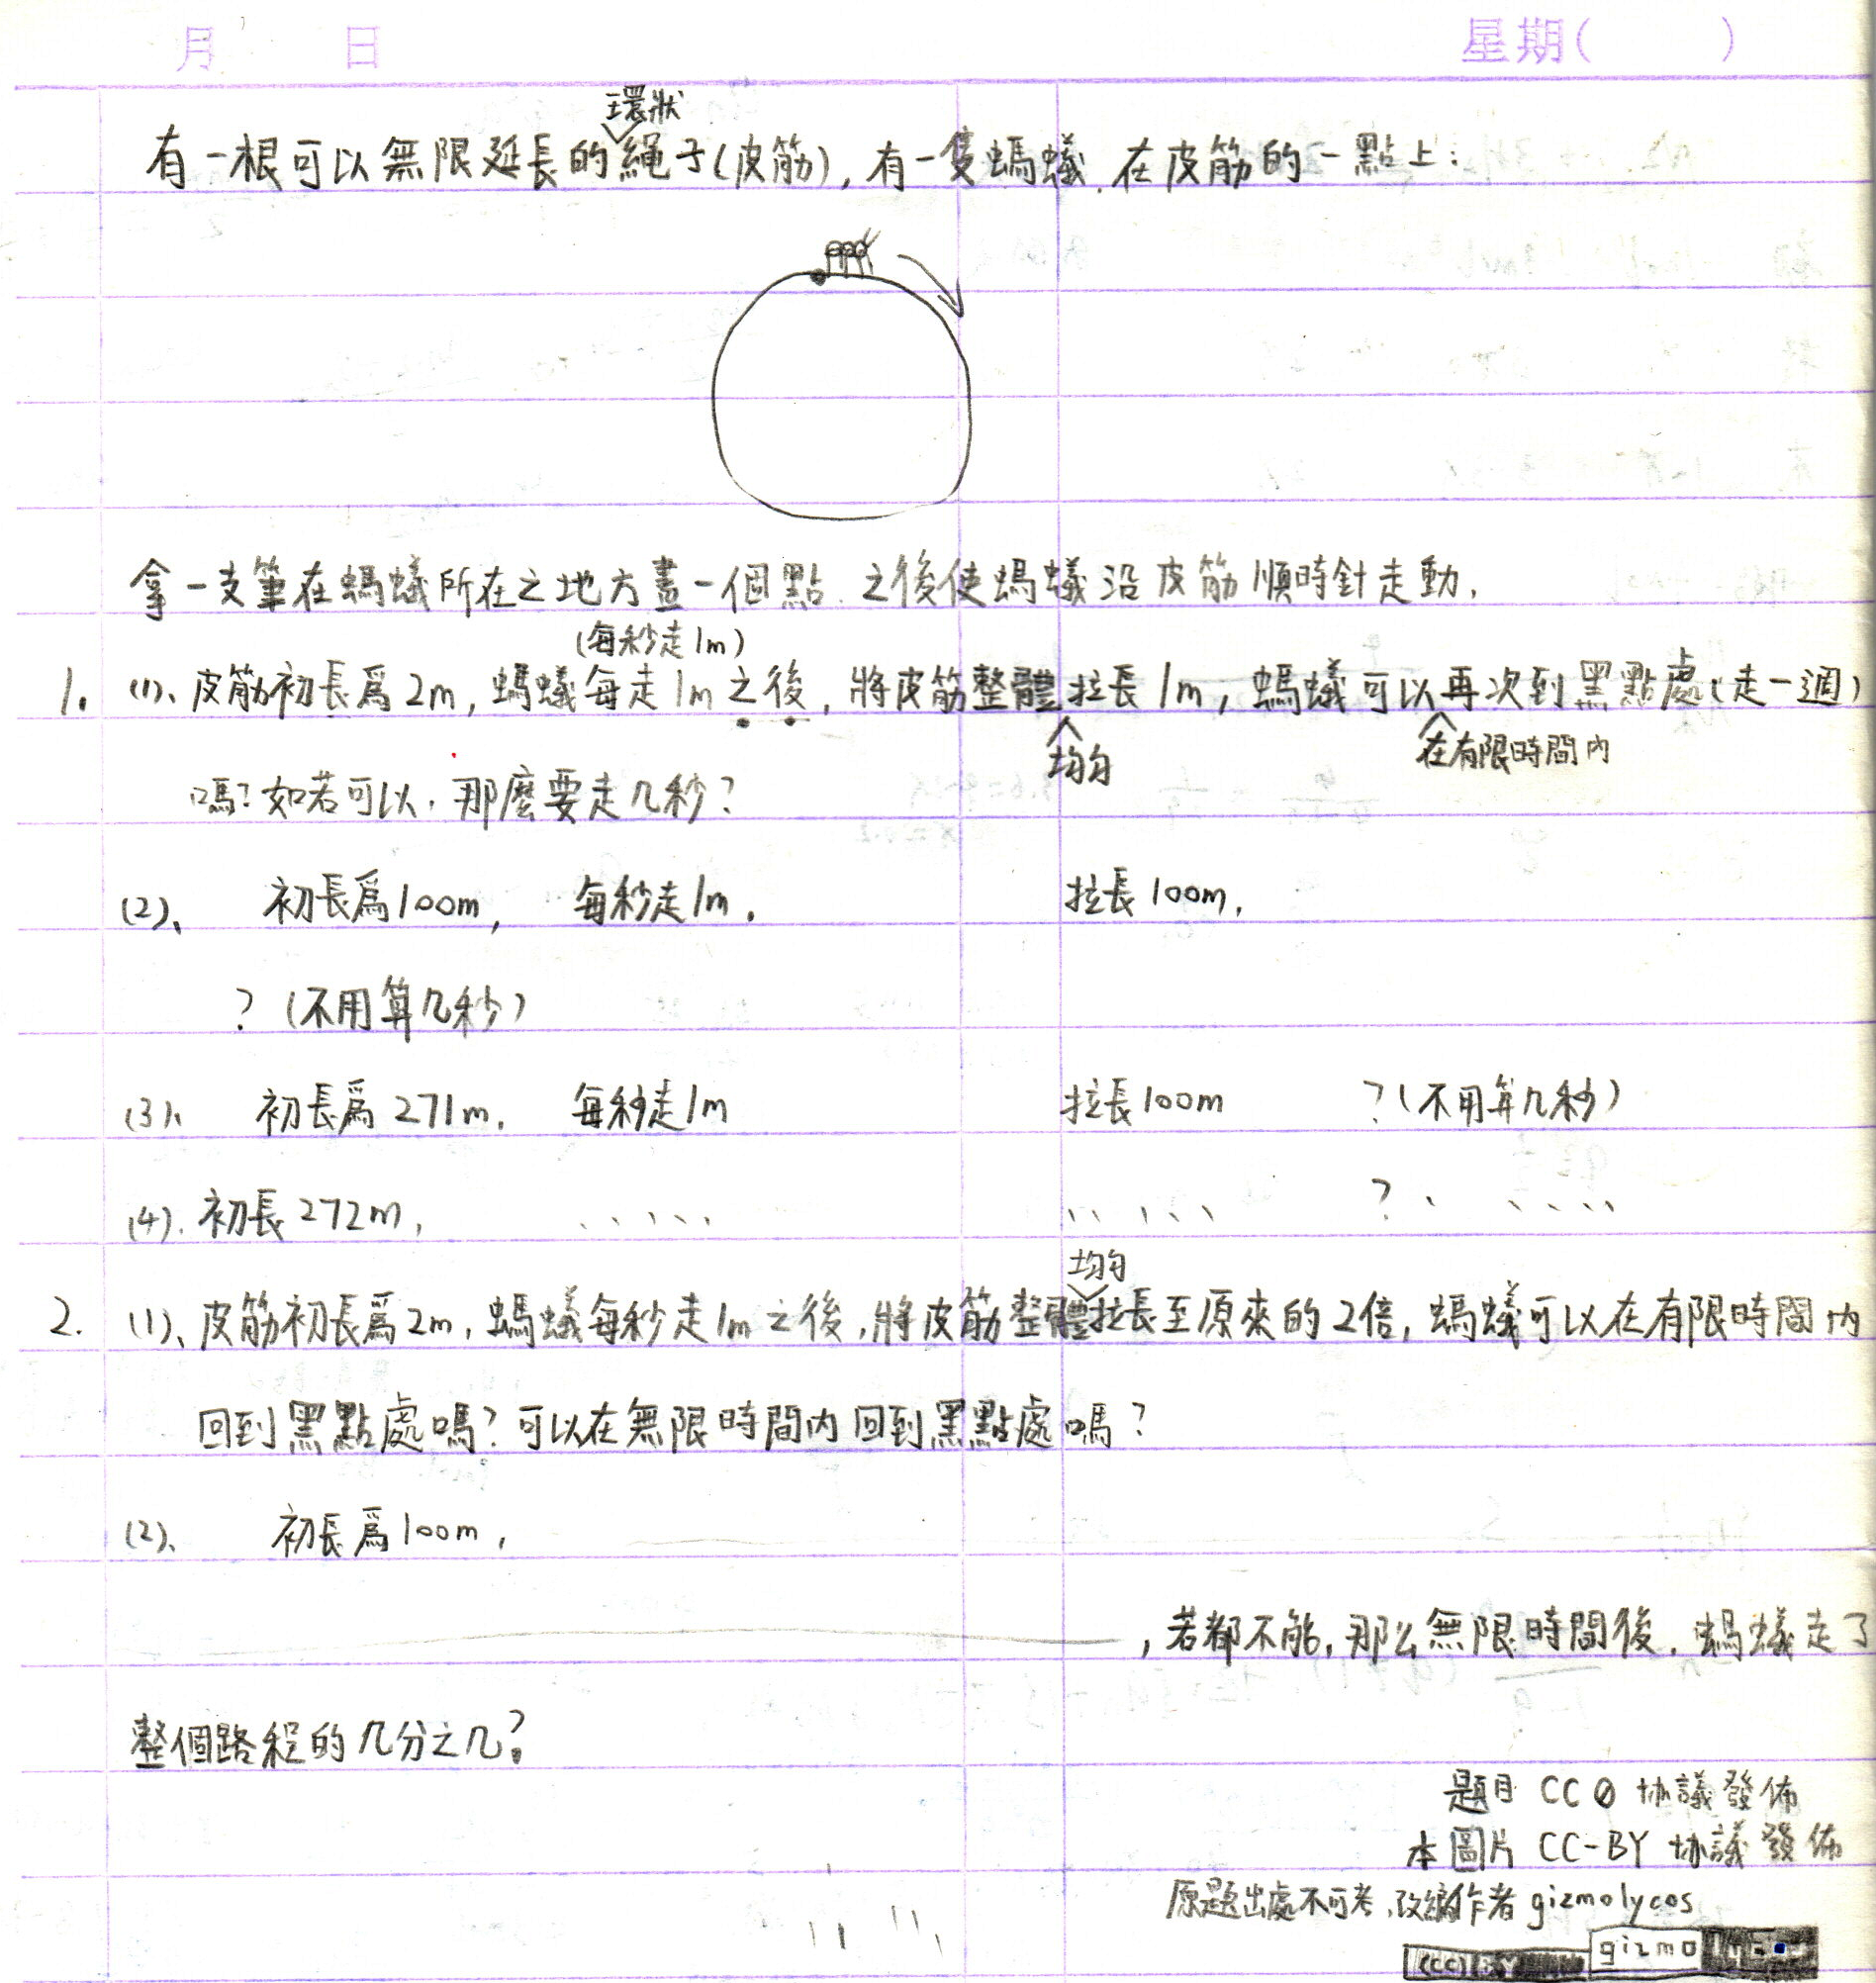 月 日 星期( )
環狀
有一根可以無限延長的繩子(皮筋),有一隻螞蟻.在皮筋的一點上:
拿一支筆在螞蟻所在之地方畫一個點.之後使螞蟻沿皮筋順時針走動.
(每秒走1m)
1. (1)、皮筋初長爲2m,螞蟻每走1m之後,將皮筋整體拉長1m,螞蟻可以再次到黑點處(走一週)
均勻 在有限時間內
嗎?如若可以,那麼要走几秒?
(2)、 初長爲100m, 每秒走1m, 拉長100m,
?(不用算几秒)
(3)、 初長爲271m, 每秒走1m 拉長100m ?(不用算几秒)
(4). 初長272m, 、、、、、 、、、、、 ?、 、、、、
均勻
2. (1)、皮筋初長爲2m,螞蟻每秒走1m之後,將皮筋整體拉長至原來的2倍,螞蟻可以在有限時間內
回到黑點處嗎?可以在無限時間內回到黑點處嗎?
(2)、 初長爲100m,
,若都不能,那么無限時間後,螞蟻走了
整個路程的几分之几?
題目 CC0 协議發佈
本圖片 CC-BY 协議發佈
原題出處不可考,改編作者 gizmolycos
(CC) BY gizmo